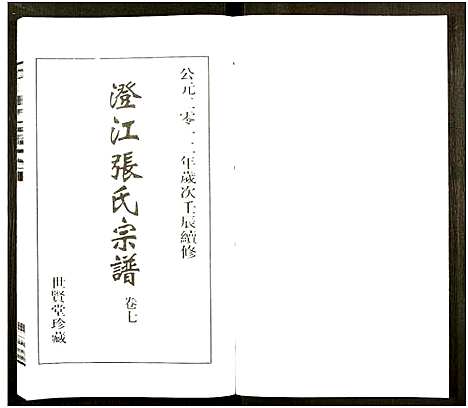 公元二零一二年歲次壬辰續修
澄江張氏宗譜
卷七
世賢堂珍藏